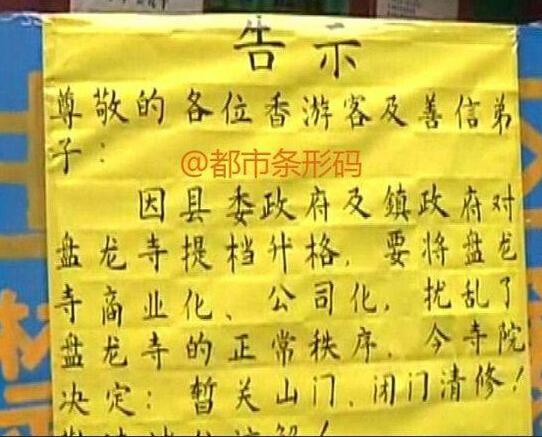 告示
尊敬的各位香游客及善信弟
子：
@都市条形码
因县委政府及鎮政府对
盘龙寺提档升格，要将盘龙
寺商业化、公司化，扰乱了
盘龙寺的正常秩序，今寺院
决定：暂关山门、闭门清修！